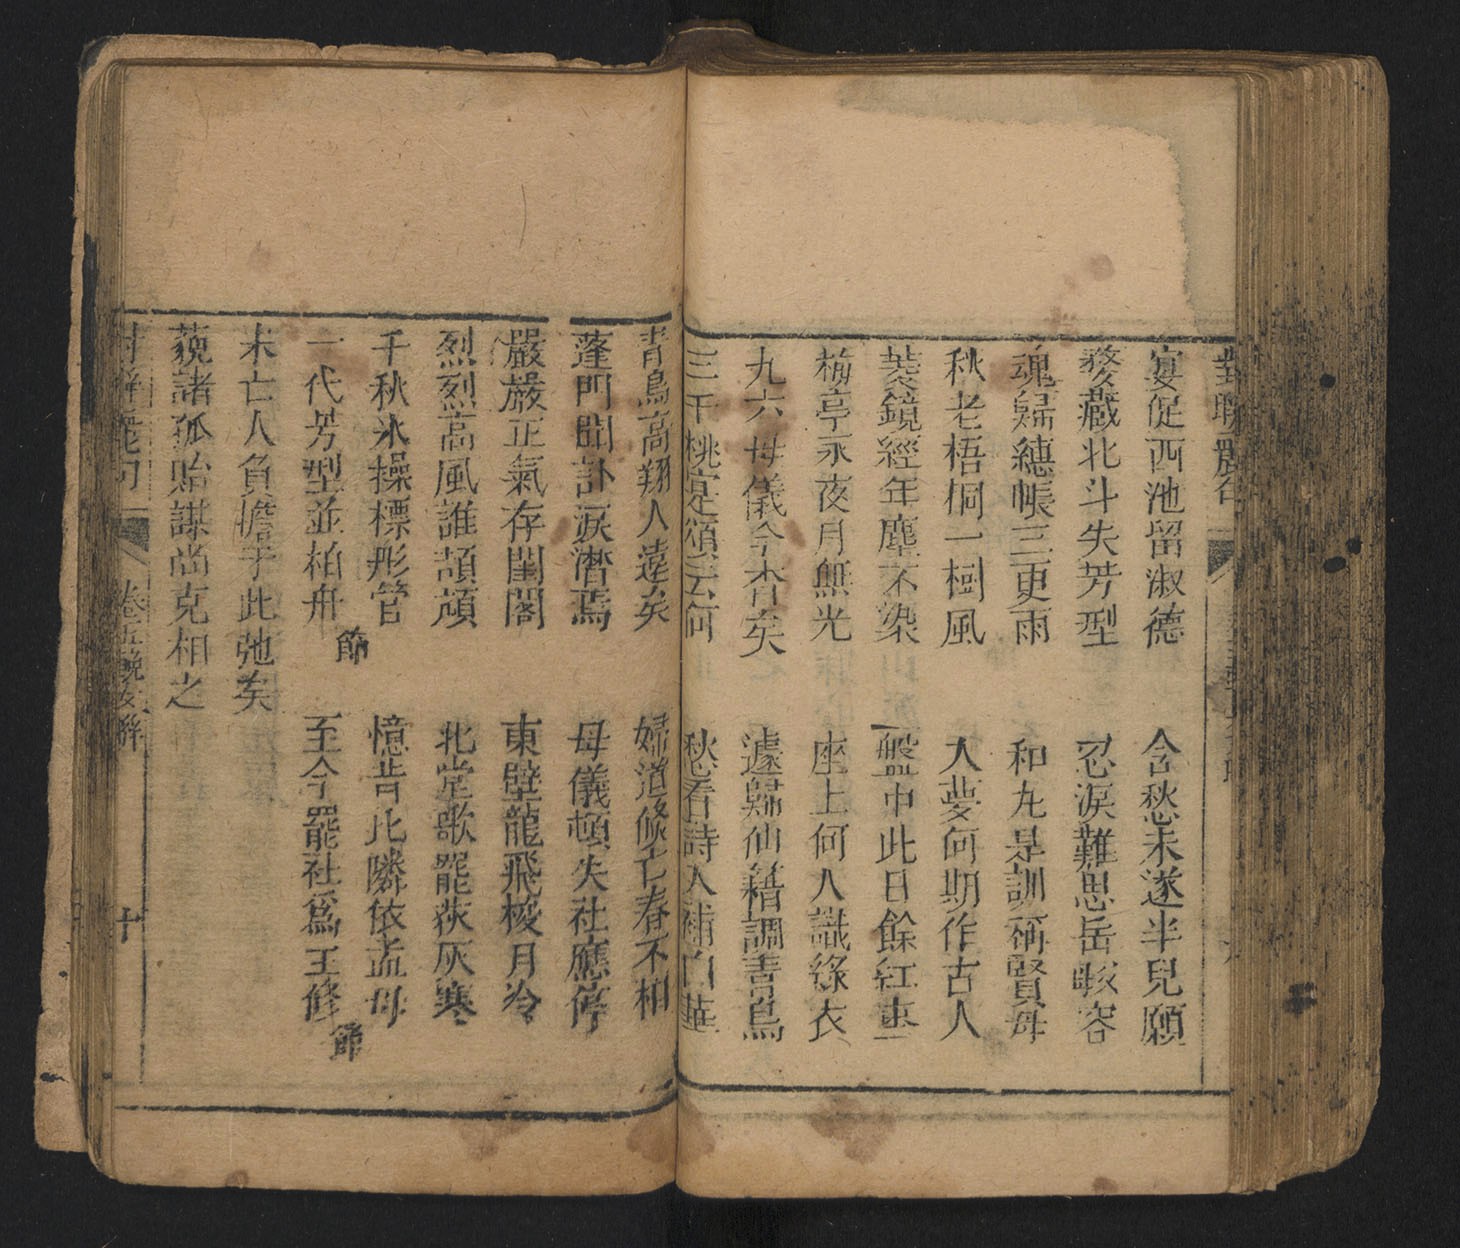 宴促西池留淑德　含愁未遂半兒願
婺藏北斗失芳型　忍淚難思岳畈容
魂歸繐帳三更雨　和丸是訓稱賢母
秋老梧桐一樹風　入夢何期作古人
裝鏡經年塵不染　盤中此日餘紅棗
梅亭永夜月無光　座上何人識綵衣
九六母儀今杳矣　遽歸仙籍調青鳥
三千桃宴頌云何　愁看詩人補白華
青鳥高翔人遠矣　婦道倏亡春不相
蓬門聞訃淚潸焉　母儀頓失社應停
嚴嚴正氣存閨閣　東壁龍飛梭月冷
烈烈高風誰頡頏　北堂歌罷荻灰寒
千秋氷操標彤管　憶昔比隣依孟母
一代芳型並柏舟　節　至今罷社爲王修　節
未亡人負擔于此弛矣
藐諸孤貽謀尚克相之
卷五　輓女聯　十